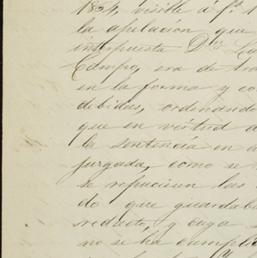 1884, visible á f.s 1
la apelacion que
interpuesta D.n La
Campo, era de tra
en la forma y co
debidas, ordenando
que en virtud a
la sentencia en a
juzgada, como u
se repusiesen las
do que guardaba
reducto, y cuya
no se ha cumpli